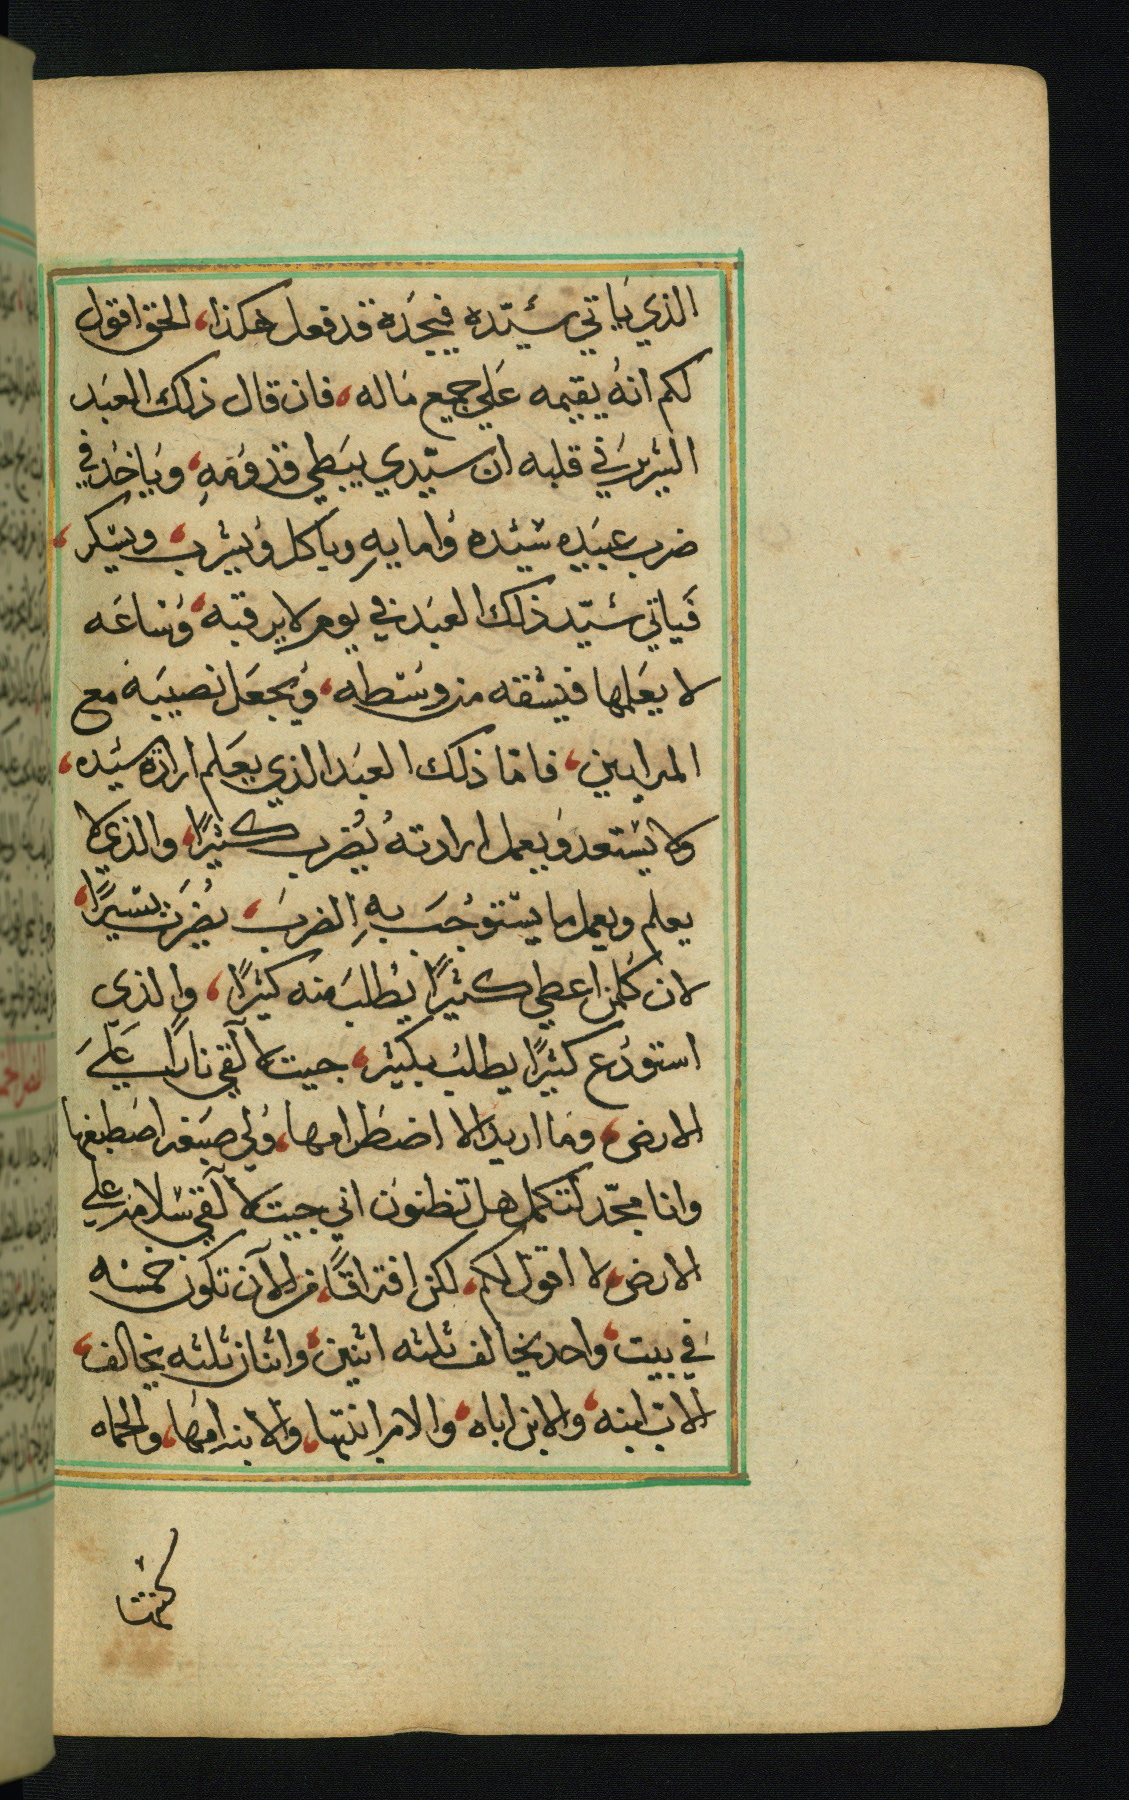 الذي ياتي سيّده فيجده قد فعل هكذا، الحق اقول
لكم انهُ يقيمه علي جميع ماله، فان قال ذلك العبد
الشرير في قلبه ان سيّدي يبطي قدومه، وياخد في
ضرب عبيد سيّده وامايهِ وياكل ويشرب، ويسكر،
فياتي سيّد ذلك العبد في يوم لا يرقبه، وساعه
لا يعلمها فيشقه من وسطه، ويجعل نصيبه مع
المرايين، فامّا ذلك العبد الذي يعلم ارادة سيّده،
ولا يستعد ويعمل ارادتهُ يُضرب كثيرًا، والذي لا
يعلم ويعمل ما يستوجب بهِ الضرب، يُضرب يسيرًا،
لان كلمن اعطي كثيرًا يُطلب منه كثيرًا، والذي
استودع كثيرًا يطلب بكثير، جيت لالقي نارًا علي
الارض، وما اريد الا اضطرامها، ولي صبغه اصطبغها
وانا مجدّ لتكمل هل تظنون اني جيت لالقي سلامه علي
الارض، لا اقول لكم، لكن افتراقًا، من الان تكون خمسه
في بيت، واحد يخالف ثلثه اثنين، واثنان ثلثه يخالف،
الاب ابنه، والابن اباه، والام ابنتها، والابنه امها، والحماه
كنتها